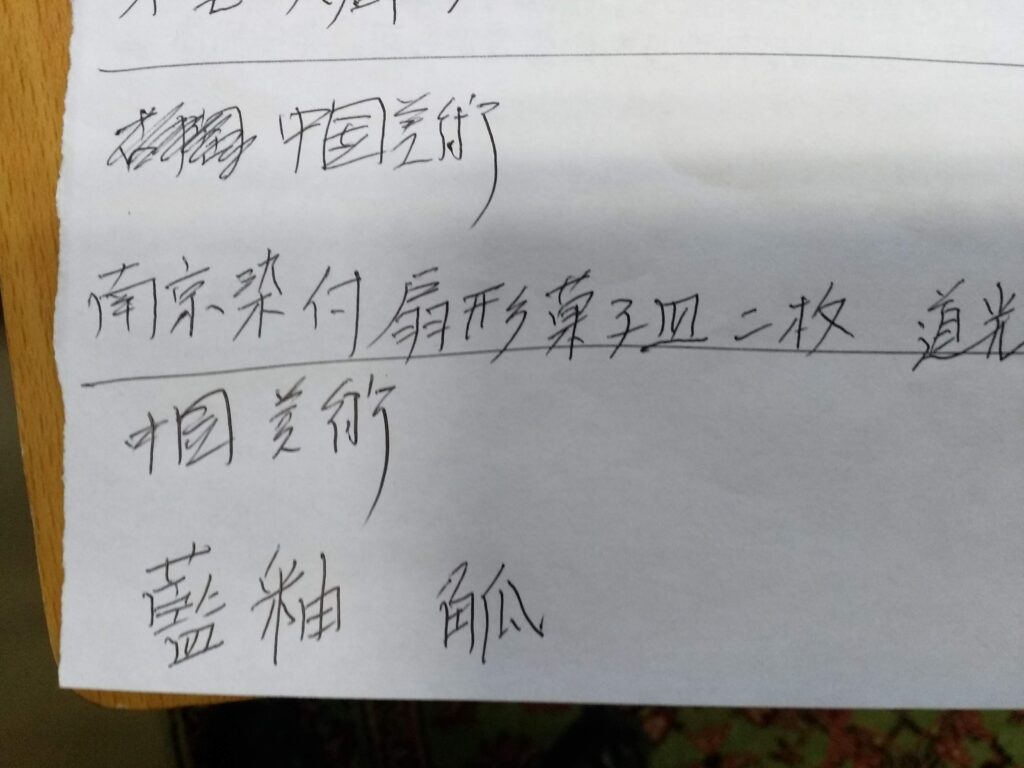 中国美術
南京染付扇形菓子皿二枚 道光
中国美術
藍釉 觚